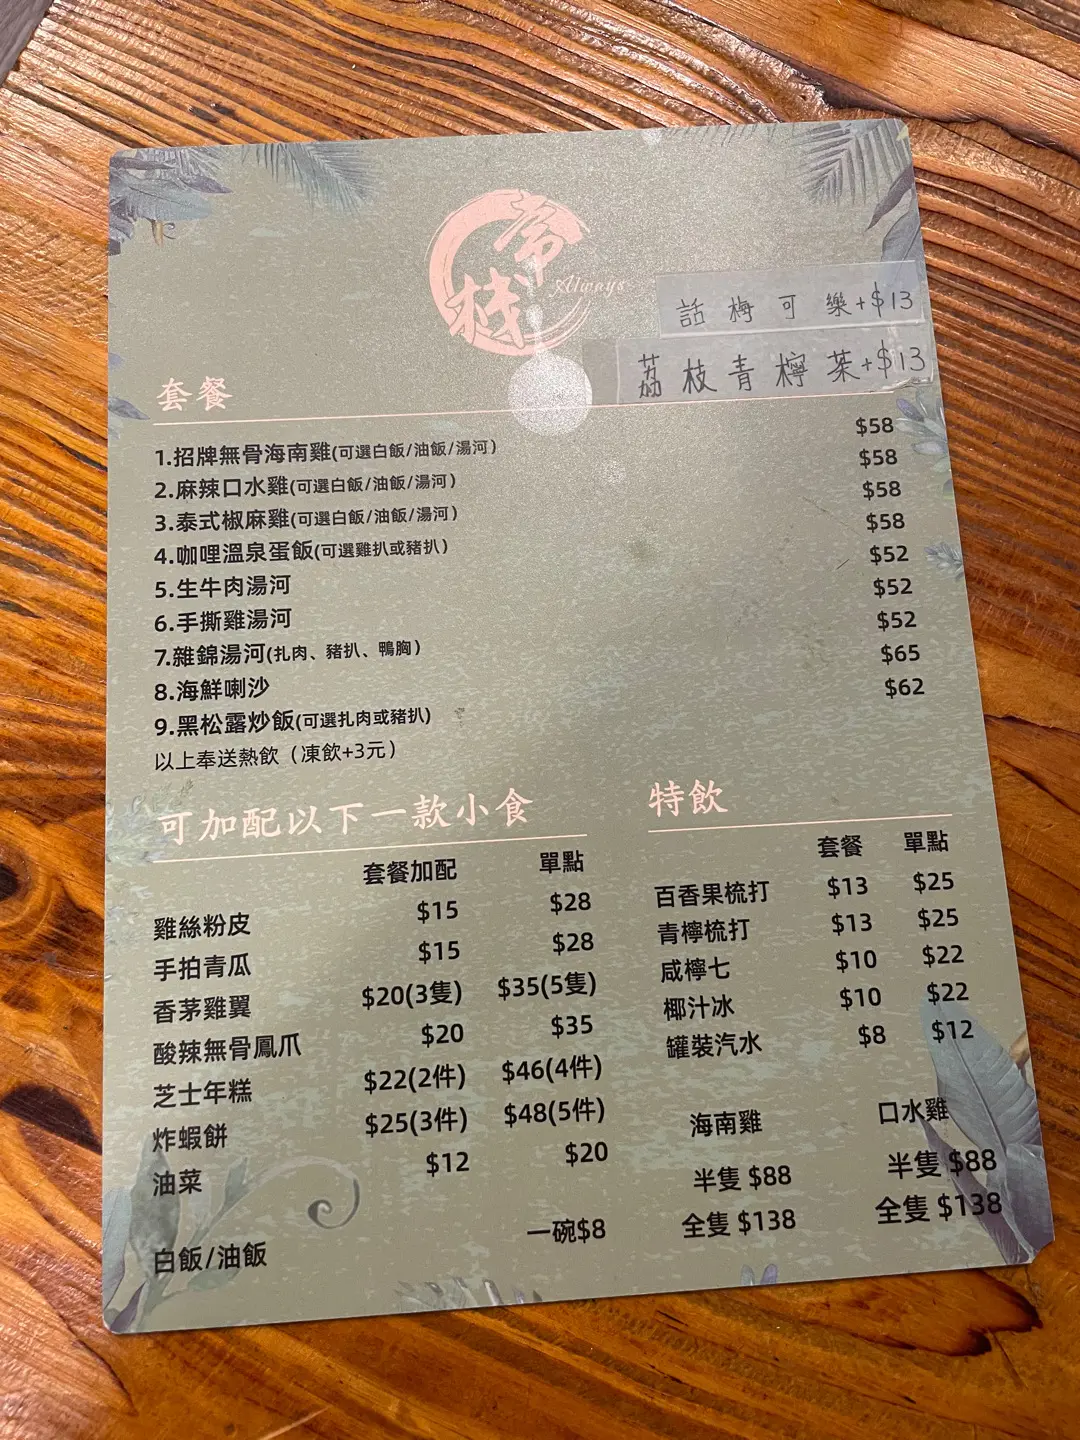 常棧
Always
話梅可樂+$13
荔枝青檸茶+$13
套餐
1.招牌無骨海南雞(可選白飯/油飯/湯河) $58
2.麻辣口水雞(可選白飯/油飯/湯河) $58
3.泰式椒麻雞(可選白飯/油飯/湯河) $58
4.咖哩溫泉蛋飯(可選雞扒或豬扒) $58
5.生牛肉湯河 $52
6.手撕雞湯河 $52
7.雜錦湯河(扎肉、豬扒、鴨胸) $52
8.海鮮喇沙 $65
9.黑松露炒飯(可選扎肉或豬扒) $62
以上奉送熱飲（凍飲+3元）
可加配以下一款小食
套餐加配 單點
雞絲粉皮 $15 $28
手拍青瓜 $15 $28
香茅雞翼 $20(3隻) $35(5隻)
酸辣無骨鳳爪 $20 $35
芝士年糕 $22(2件) $46(4件)
炸蝦餅 $25(3件) $48(5件)
油菜 $12 $20
白飯/油飯 一碗$8
特飲
套餐 單點
百香果梳打 $13 $25
青檸梳打 $13 $25
咸檸七 $10 $22
椰汁冰 $10 $22
罐裝汽水 $8 $12
海南雞 口水雞
半隻 $88 半隻 $88
全隻 $138 全隻 $138